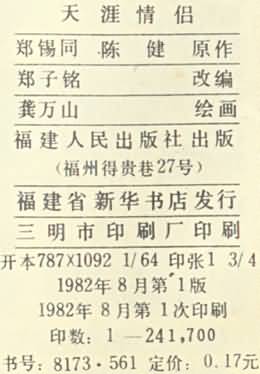 天涯情侣
郑锡同 陈健 原作
郑子铭 改编
龚万山 绘画
福建人民出版社出版
(福州得贵巷27号)
福建省新华书店发行
三明市印刷厂印刷
开本787×1092 1/64 印张1 3/4
1982年8月第1版
1982年8月第1次印刷
印数：1—241,700
书号：8173·561 定价：0.17元